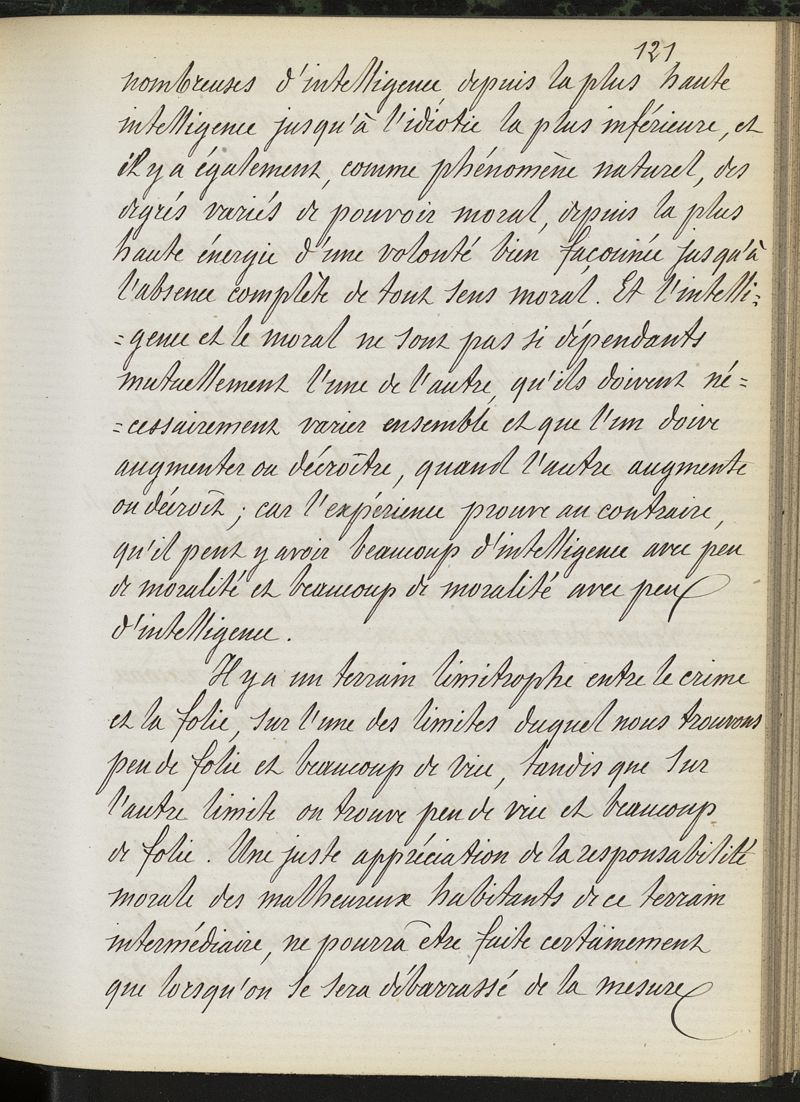 121
nombreuses d'intelligence depuis la plus haute
intelligence jusqu'à l'idiotie la plus inférieure, et
il y a également, comme phénomène naturel, des
degrés variés de pouvoir moral, depuis la plus
haute énergie d'une volonté bien façonnée jusqu'à
l'absence complète de tout sens moral. Et l'intelli-
=gence et le moral ne sont pas si dépendants
mutuellement l'une de l'autre, qu'ils doivent né=
=cessairement varier ensemble et que l'un doive
augmenter ou décroître, quand l'autre augmente
ou décroît ; car l'expérience prouve au contraire,
qu'il peut y avoir beaucoup d'intelligence avec peu
de moralité et beaucoup de moralité avec peu
d'intelligence.
Il y a un terrain limitrophe entre le crime
et la folie, sur l'une des limites duquel nous trouvons
peu de folie et beaucoup de vice, tandis que sur
l'autre limite on trouve peu de vice et beaucoup
de folie. Une juste appréciation de la responsabilité
morale des malheureux habitants de ce terrain
intermédiaire, ne pourra être faite certainement
que lorsqu'on se sera débarrassé de la mesure